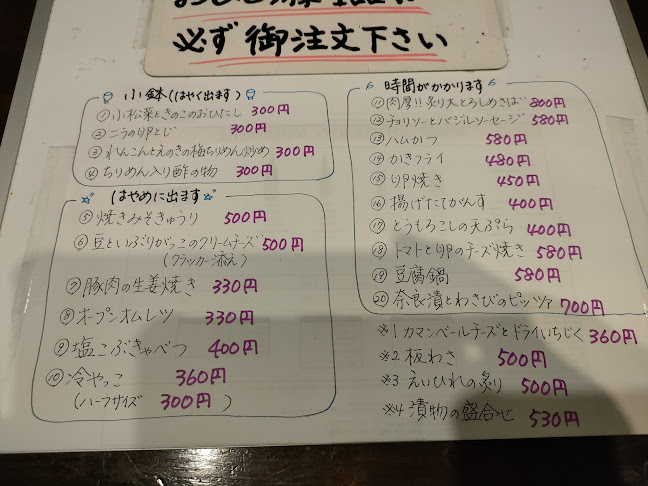 必ず御注文下さい
小鉢(はやく出ます)
①小松菜ときのこのおひたし 300円
②ニラの卵とじ 300円
③れんこんとえのきの梅ちりめん炒め 300円
④ちりめん入り酢の物 300円
はやめに出ます
⑤焼きみそきゅうり 500円
⑥豆といぶりがっこのクリームチーズ 500円
(クラッカー添え)
⑦豚肉の生姜焼き 330円
⑧オープンオムレツ 330円
⑨塩こぶきゃべつ 400円
⑩冷やっこ 360円
(ハーフサイズ 300円)
時間がかかります
⑪肉厚!!炙り大とろしめさば 800円
⑫チョリソーとバジルソーセージ 580円
⑬ハムかつ 580円
⑭かきフライ 480円
⑮卵焼き 450円
⑯揚げたてがんす 400円
⑰とうもろこしの天ぷら 400円
⑱トマトと卵のチーズ焼き 580円
⑲豆腐鍋 580円
⑳奈良漬とわさびのピッツァ 700円
※1 カマンベールチーズとドライいちじく 360円
※2 板わさ 500円
※3 えいひれの炙り 500円
※4 漬物の盛合せ 530円